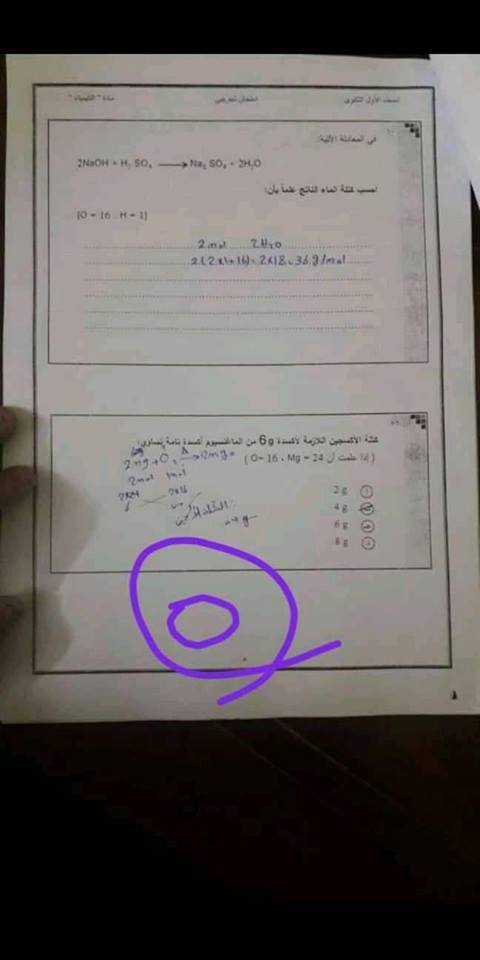 الصف الأول الثانوى امتحان تجريبي مادة " الكيمياء "
في المعادلة الآتية:
2NaOH + H₂ SO₄ ⟶ Na₂ SO₄ + 2H₂O
احسب كتلة الماء الناتج علماً بأن:
[O = 16 , H = 1]
2mol 2H₂O
2(2x1+16)=2x18=36g/mol
كتلة الأكسجين اللازمة لأكسدة 6g من الماغنسيوم أكسدة تامة تساوى:
( إذا علمت أن Mg = 24 ، O= 16 )
2mg+O₂ Δ→ 2mg
2mol 1mol
2x24 2x16
6
2 g
4 g
6 g
8 g
٨